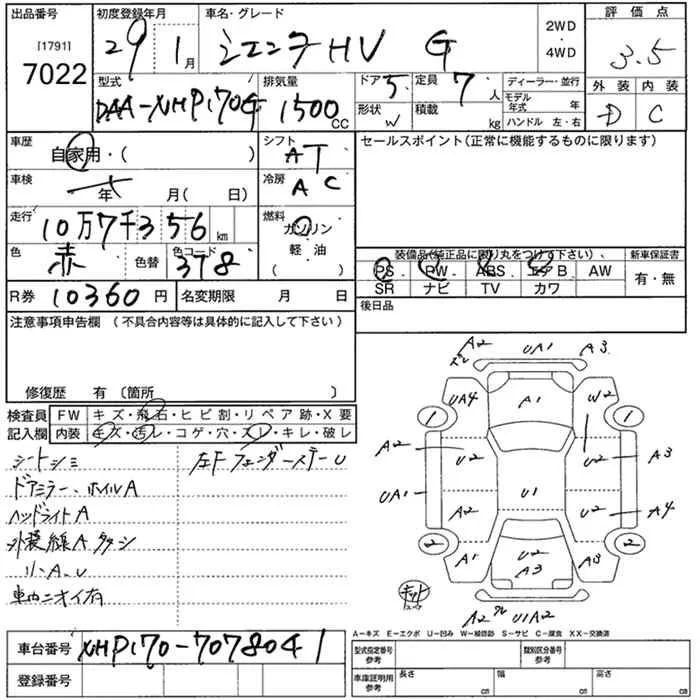 出品番号 初度登録年月 車名・グレード 2WD 評価点
[1791] 29 1月 シエンタHV G ・ 3.5
7022 4WD
型式 排気量 ドア 5 定員 7人 ディーラー・並行 外装 内装
DAA-NHP170G 1500cc 形状 W 積載 kg モデル年式 年 D C
ハンドル 左・右
車歴 自家用・( ) シフト AT セールスポイント(正常に機能するものに限ります)
車検 年 月( 日) 冷房 AC
走行 10万7千356km 燃料 ガソリン
色 赤 色替 色コード 3T8 軽・油 ( )
装備品(純正品に限り丸をつけて下さい)、 新車保証書
PS PW ABS エアB AW 有・無
SR ナビ TV カワ
R券 10360円 名変期限 月 日 後日品
注意事項申告欄 (不具合内容等は具体的に記入して下さい)
修復歴 有 〔箇所 〕
検査員 FW キズ・飛石・ヒビ割・リペア跡・X要
記入欄 内装 キズ・汚レ・コゲ・穴・スレ・キレ・破レ
シートシミ 左Fフェンダーステー U
ドアミラー、ホイルA
ヘッドライトA
リ-A.U
車内ニオイ有
A2 UA1 A3
UA4 A1 W2
1 1
A2 U2 U2 A3
UA1 U1
A2 U2 A4
2 2
A1 U2 A3
A3
キット
A2 U1A2
A-キズ E-エクボ U-凹み W-補修跡 S-サビ C-腐食 XX-交換済
車台番号 NHP170-7078041
登録番号
型式指定番号 参考 類別区分番号 参考
車庫証明用 参考 長さ cm 幅 cm 高さ cm